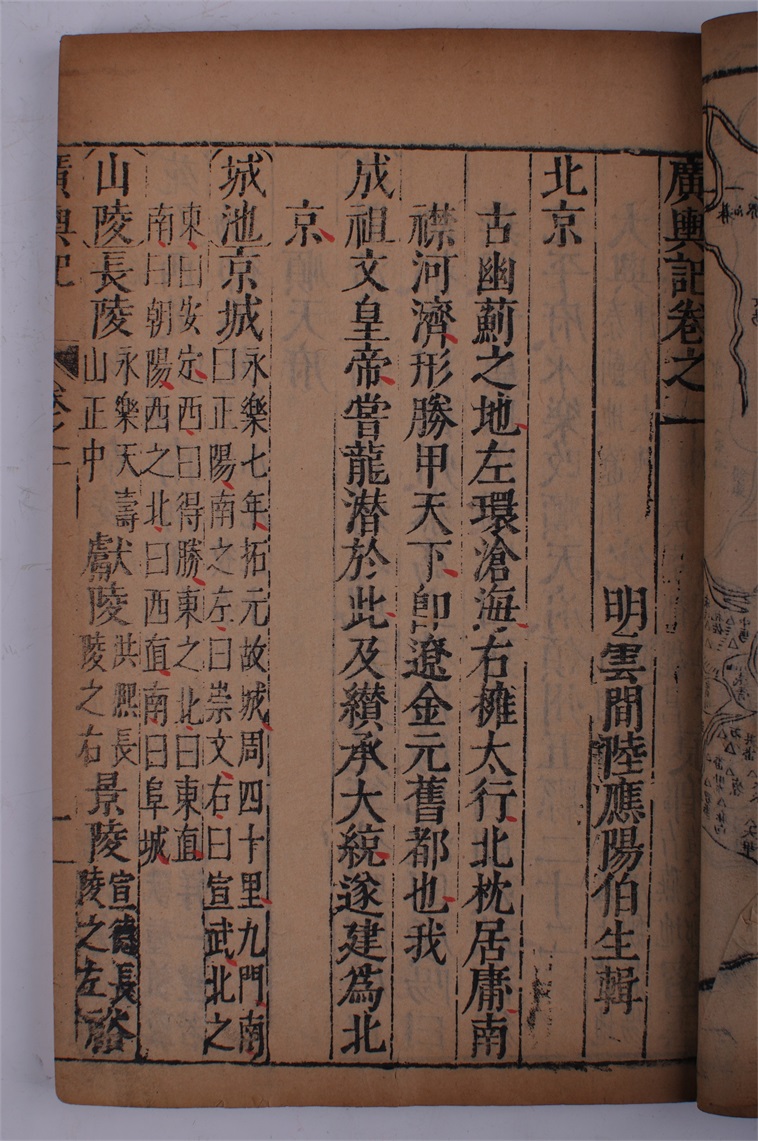 廣輿記卷之一
明雲間陸應陽伯生輯
北京
古幽薊之地左環滄海右擁太行北枕居庸南
襟河濟形勝甲天下卽遼金元舊都也我
成祖文皇帝嘗龍潛於此及纘承大統遂建爲北
京
城池京城永樂七年拓元故城周四十里九門南
曰正陽南之左曰崇文右曰宣武北之
東曰安定西曰得勝東之北曰東直
南曰朝陽西之北曰西直南曰阜城
山陵長陵永樂天壽山正中獻陵洪熙長陵之右景陵宣德長陵之左裕
廣輿記
卷之一
一